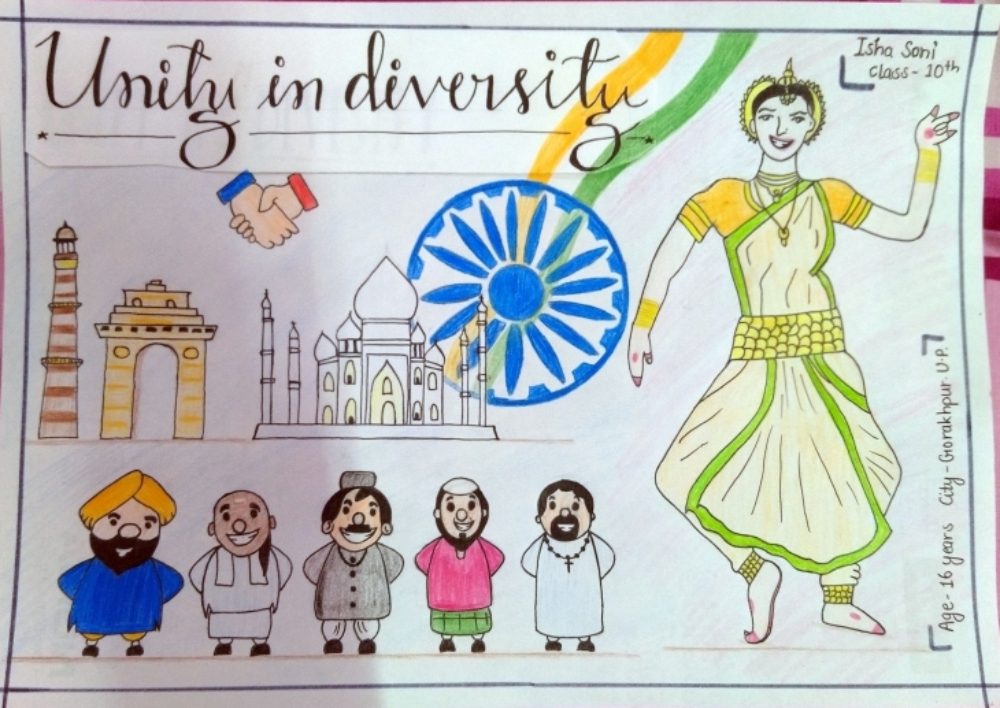 Unity in diversity
Isha Soni
Class - 10th
Age - 16 years City - Gorakhpur. U.P.